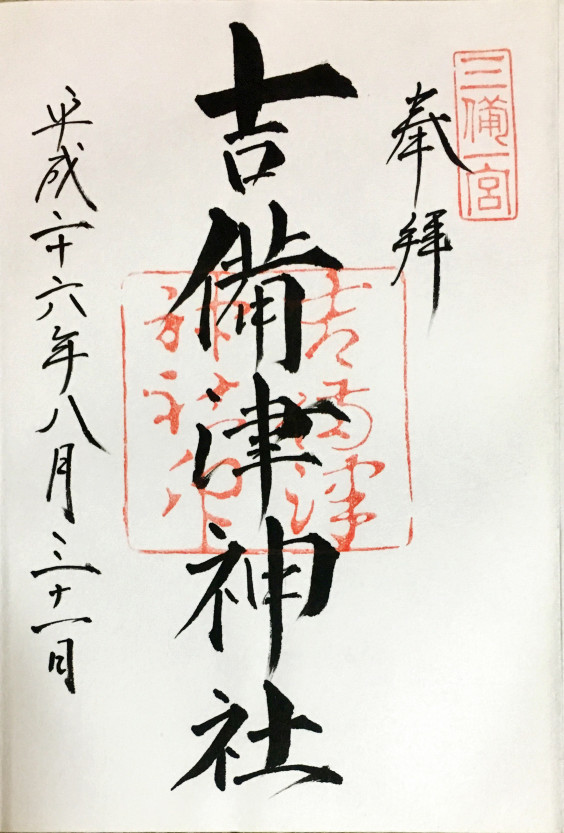 三備一宮
奉拝
吉備津神社
吉備津
平成二十六年八月三十一日